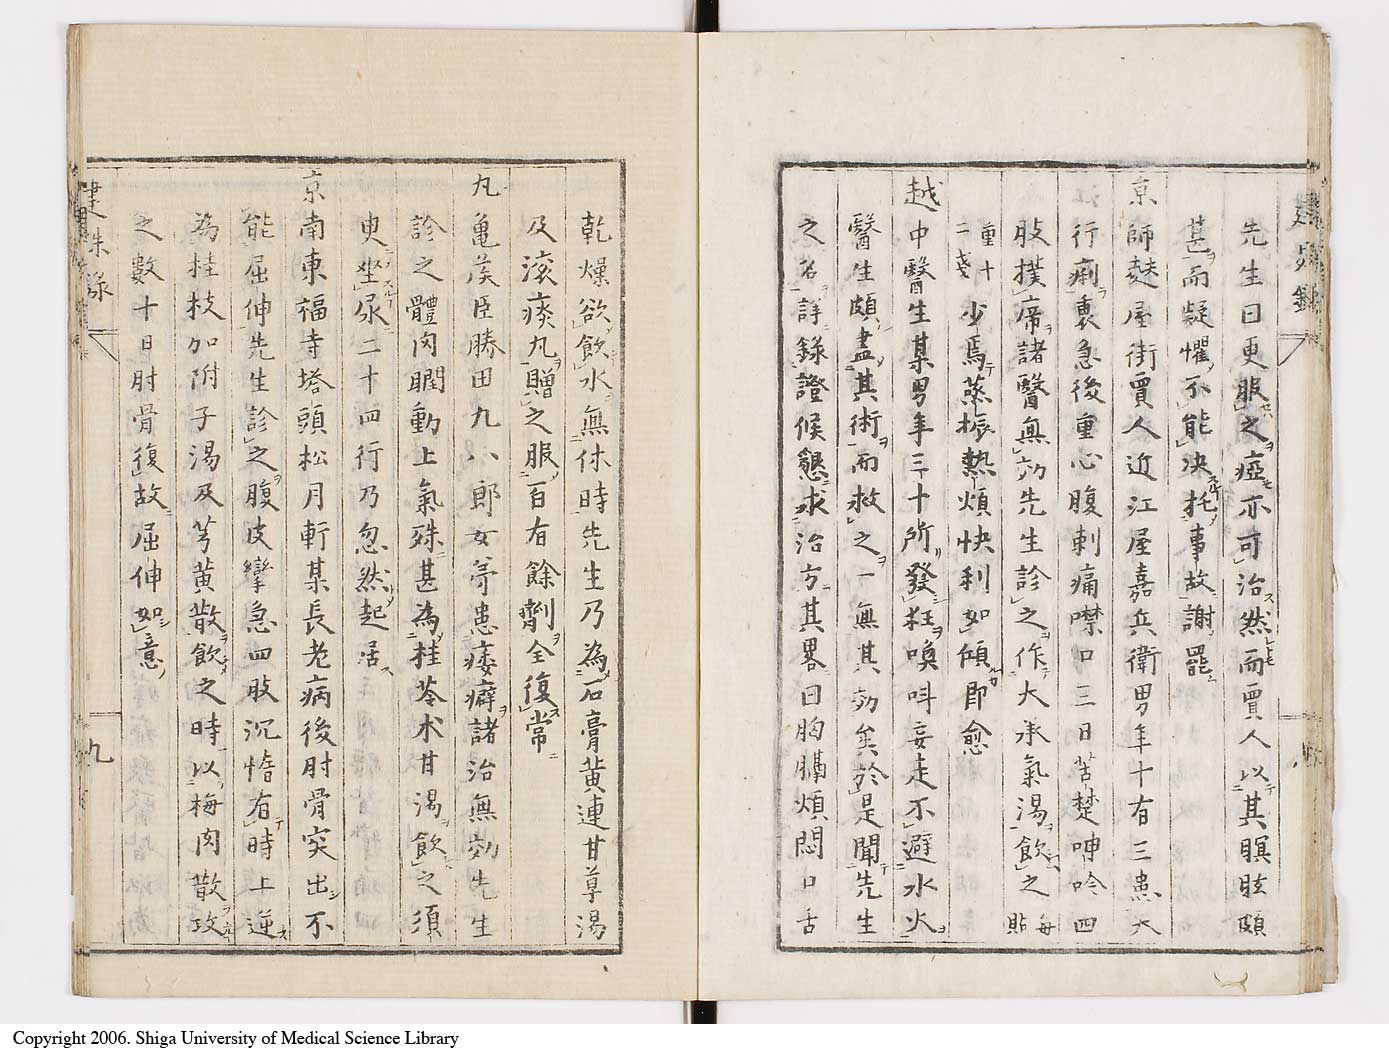 建殊録
先生曰更服之瘂亦可治然而賈人以其瞑眩頗
甚而疑懼不能决托事故謝罷
京師麩屋街賈人近江屋嘉兵衛男年十有三患大
行痢裏急後重心腹刺痛噤口三日苦楚呻吟四
肢撲席諸醫無効先生診之作大承氣湯飲之每貼
重十二戔少焉蒸振熱煩快利如傾即愈
越中醫生某男年三十所發狂喚呌妄走不避水火
醫生頗盡其術而救之一無其効矣於是聞先生
之名詳錄證候懇求治方其畧曰胸膈煩悶口舌
乾燥欲飲水無休時先生乃為石膏黄連甘草湯
及滚痰丸贈之服百有餘劑全復常
丸亀䕶臣勝田九八郎女弟患痿癖諸治無効先生
診之體肉瞤動上氣殊甚為桂苓术甘湯飲之須
臾坐尿二十四行乃忽然起居
京南東福寺塔頭松月軒某長老病後肘骨突出不
能屈伸先生診之腹皮攣急四肢沉惰有時上逆
為桂枝加附子湯及芎黄散飲之時以梅肉散攻
之數十日肘骨復故屈伸如意
建殊録
九
Copyright 2006. Shiga University of Medical Science Library